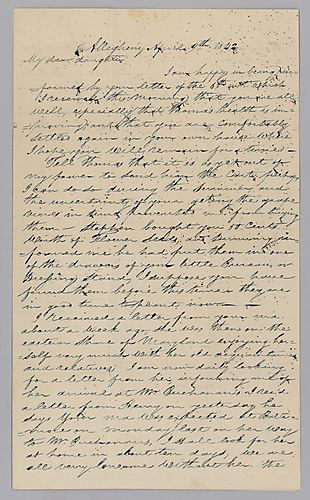 Allegheny April 9th 1842
My dear daughter
I am happy in being in
formed by your letter of the 5th inst. which
I received this morning that you are all
well, especially that Thomas health is im
proving and that you are comfortably
settled again in your own house where
I hope you will remain
Tell Thomas that it is out of
my power to send him the Carts, perhaps
I can do so during the summer, and
the uncertainty of your getting the grape
vines in time prevented me from buying
them — Stephen bought you 50 Cents
worth of flower seeds, and in
formed me he had put them in one
of the drawers of your little Bureau or
Dressing stand, I suppose you have
found them before this time & they are
in good time to plant now —
I received a letter from your ma
about a week ago, she was then on the
eastern Shore of Maryland enjoying her
self very much with her old acquaintances
and relatives, I am now daily looking
for a letter from her informing me of
her arrival at Mr Buchanans, I rec'd
a letter from Henry on yesterday, he
says your ma was expected at Balti
more on monday last on her way
to Mr Buchanans, I shall look for her
at home in about ten days, we are
all very lonesome without her. the